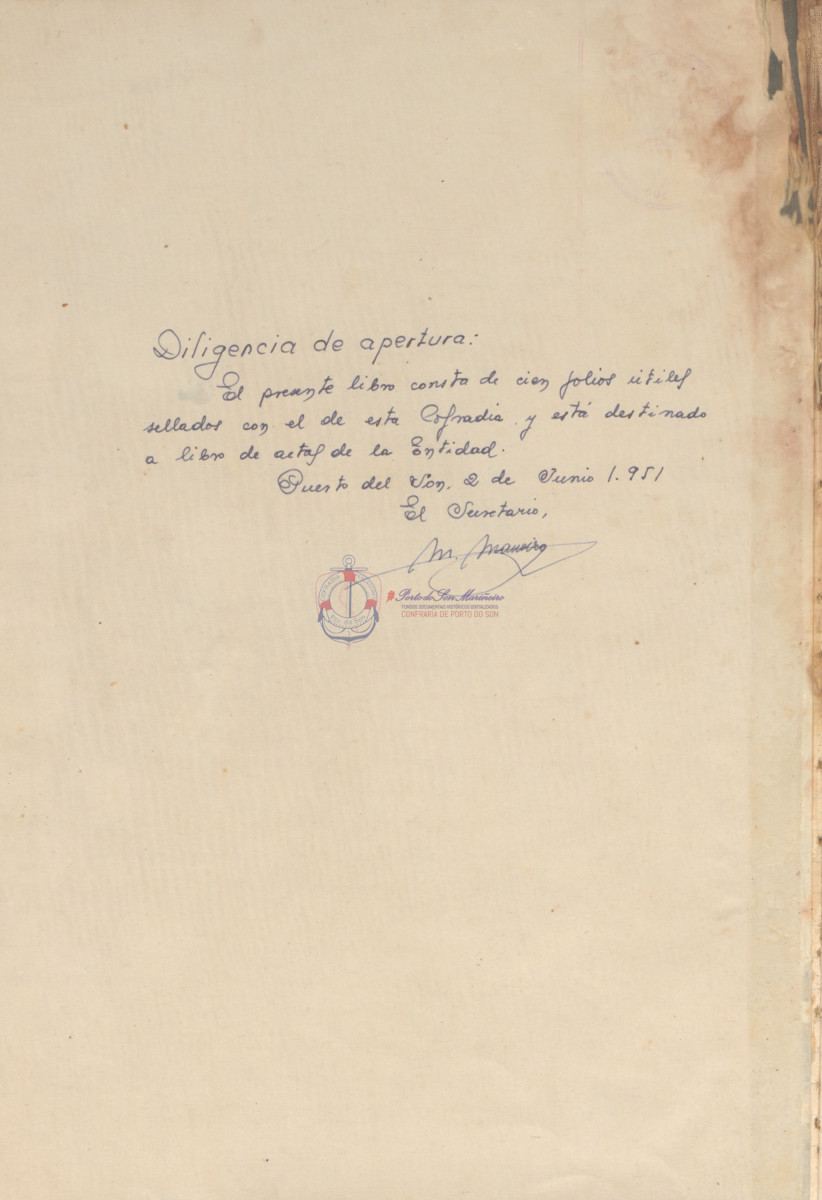 Diligencia de apertura:
El presente libro consta de cien folios útiles
sellados con el de esta Cofradía y está destinado
a libro de actas de la Entidad.
Puerto del Son, 2 de Junio 1.951
El Secretario,
M. Maneiro
Porto do Son Mariñeiro
FONDOS DOCUMENTAIS HISTÓRICOS DIXITALIZADOS
CONFRARÍA DE PORTO DO SON